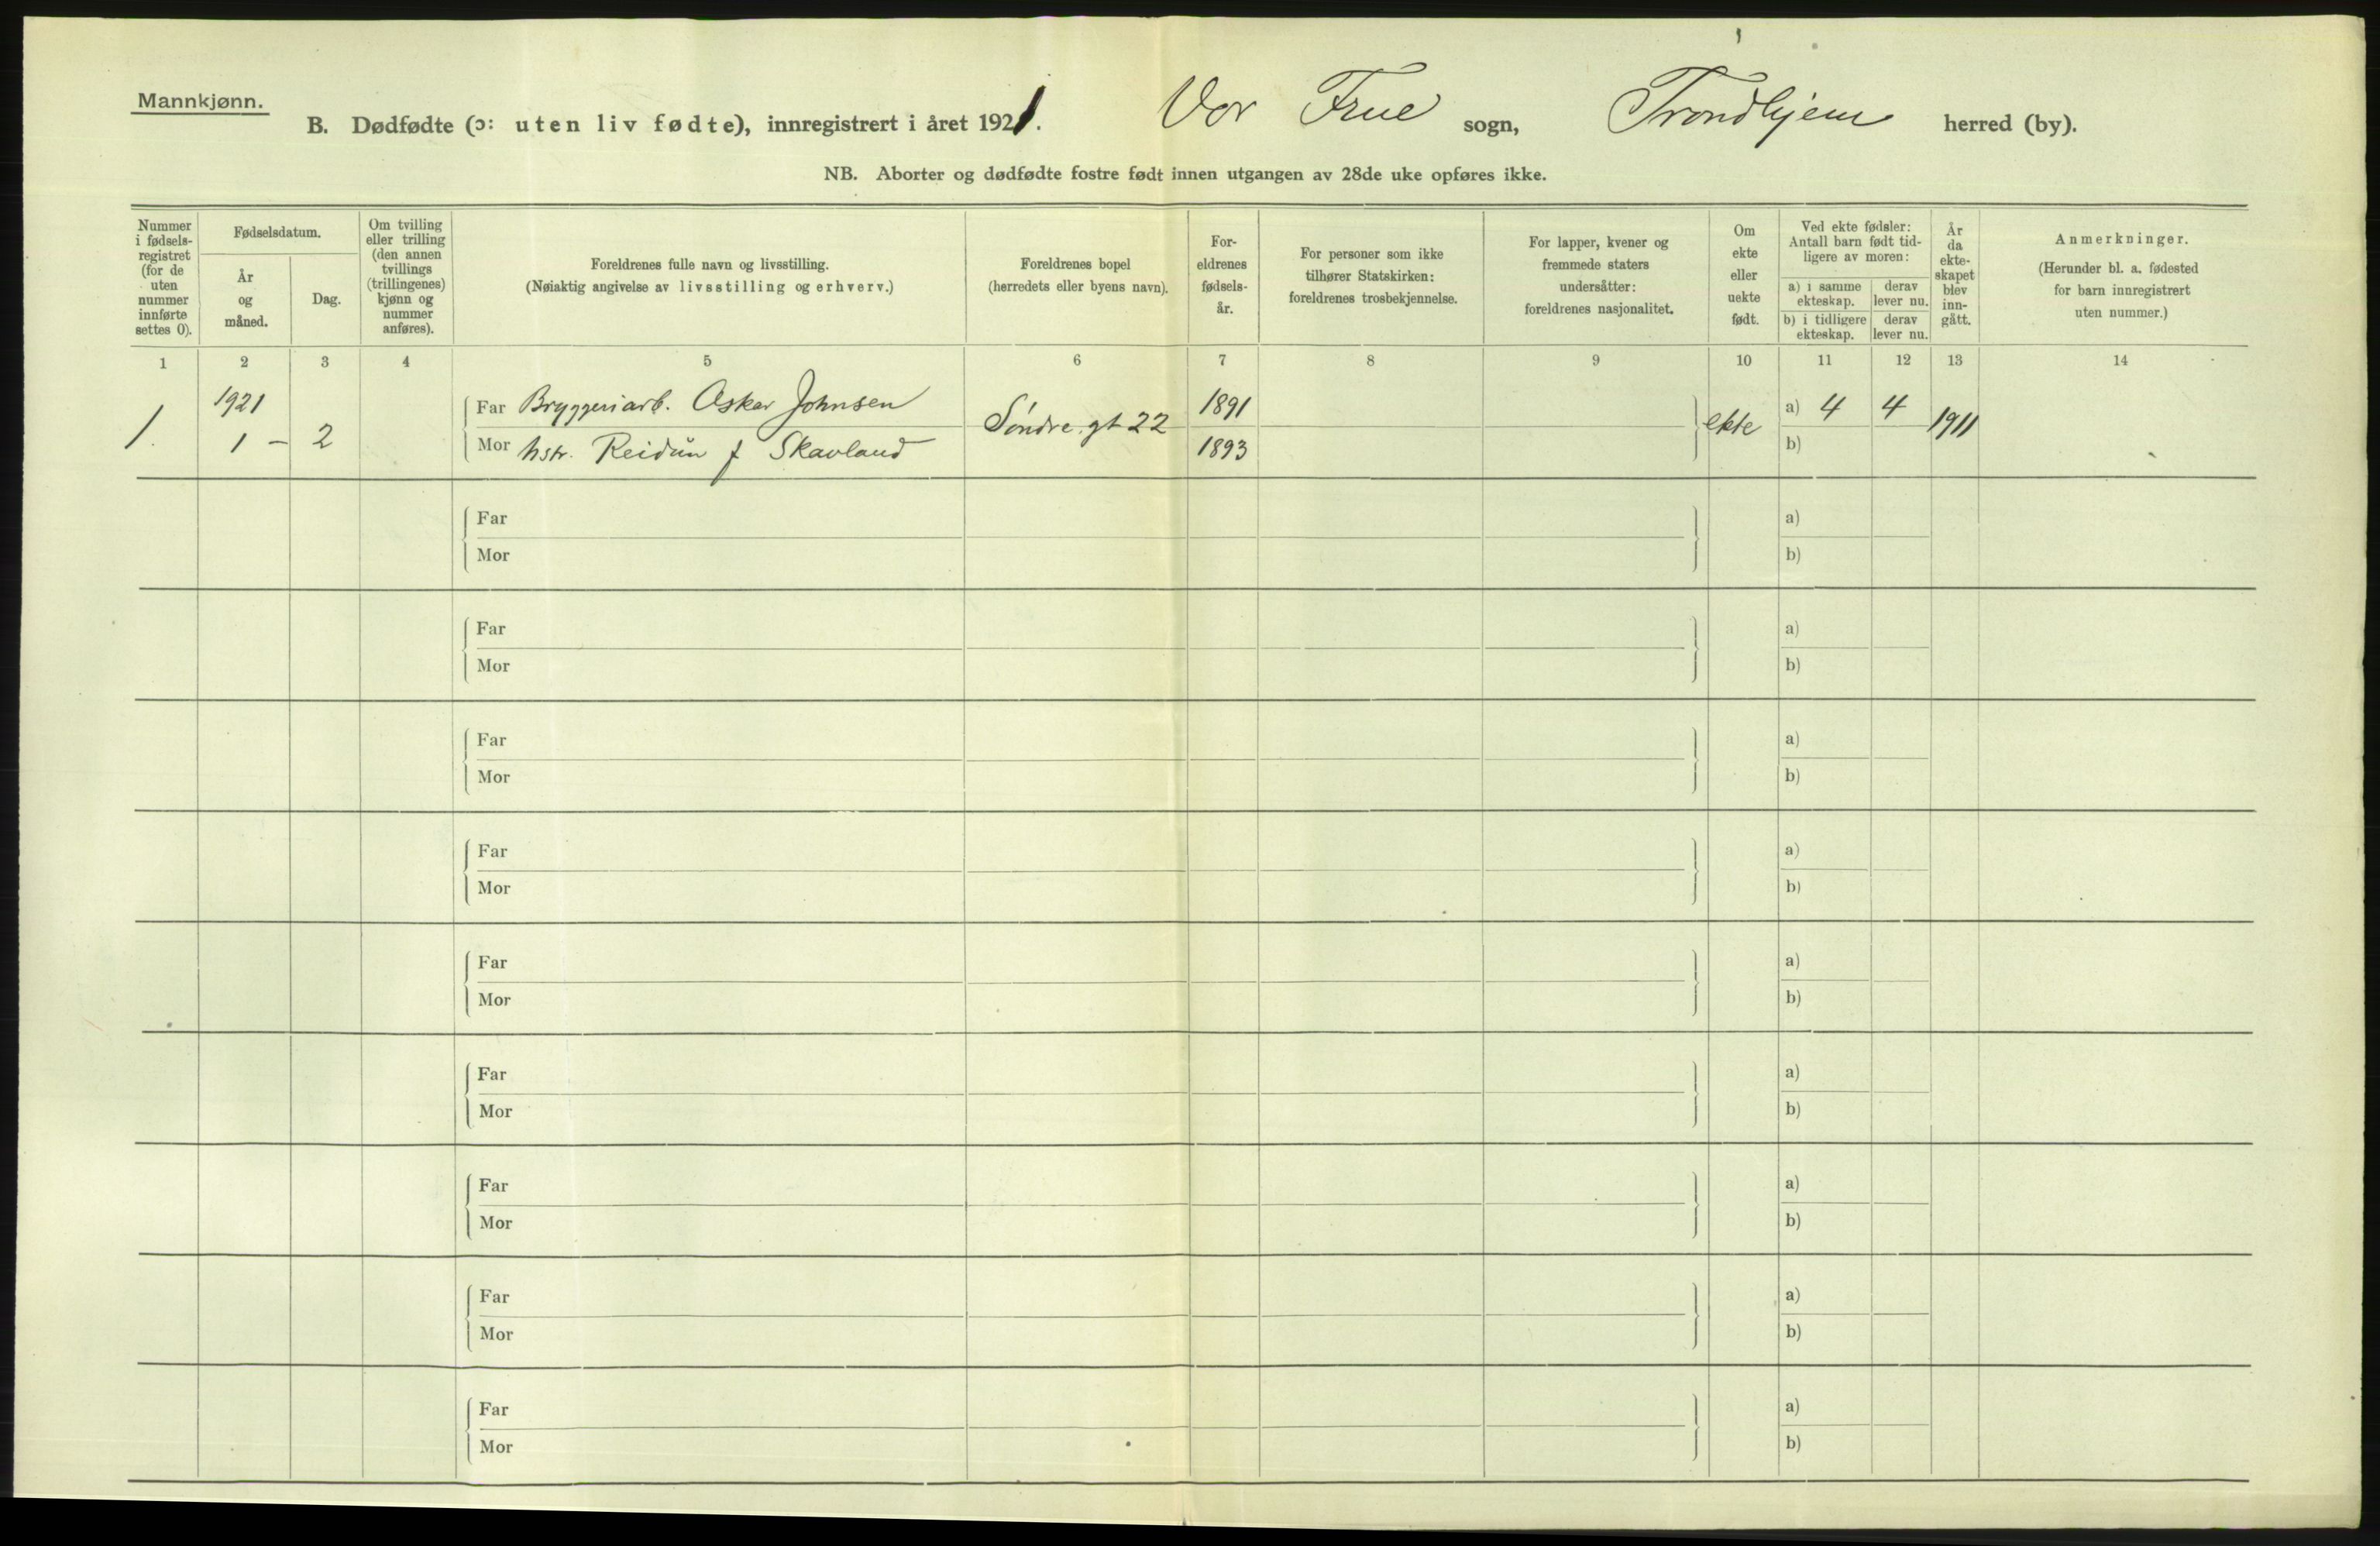 Mannkjønn.
B. Dødfødte (ɔ: uten liv fødte), innregistrert i året 1921. Vor Frue sogn, Trondhjem herred (by).
NB. Aborter og dødfødte fostre født innen utgangen av 28de uke opføres ikke.
Nummer i fødsels-registret (for de uten nummer innførte settes 0).
Fødselsdatum.
År og måned.
Dag.
Om tvilling eller trilling (den annen tvillings (trillingenes) kjønn og nummer anføres).
Foreldrenes fulle navn og livsstilling.
(Nøiaktig angivelse av livsstilling og erhverv.)
Foreldrenes bopel
(herredets eller byens navn).
For-eldrenes fødsels-år.
For personer som ikke tilhører Statskirken: foreldrenes trosbekjennelse.
For lapper, kvener og fremmede staters undersåtter: foreldrenes nasjonalitet.
Om ekte eller uekte født.
Ved ekte fødsler: Antall barn født tid-ligere av moren:
a) i samme ekteskap.
derav lever nu.
b) i tidligere ekteskap.
derav lever nu.
År da ekte-skapet blev inn-gått.
Anmerkninger.
(Herunder bl. a. fødested for barn innregistrert uten nummer.)
1 2 3 4 5 6 7 8 9 10 11 12 13 14
1. 1921 1 – 2
Far Bryggeriarb. Oskar Johnsen
Mor hstr. Reidun f Skavland
Søndre. gt 22
1891
1893
ekte
a) 4 4
b)
1911
Far a)
Mor b)
Far a)
Mor b)
Far a)
Mor b)
Far a)
Mor b)
Far a)
Mor b)
Far a)
Mor b)
Far a)
Mor b)
Far a)
Mor b)
Far a)
Mor b)